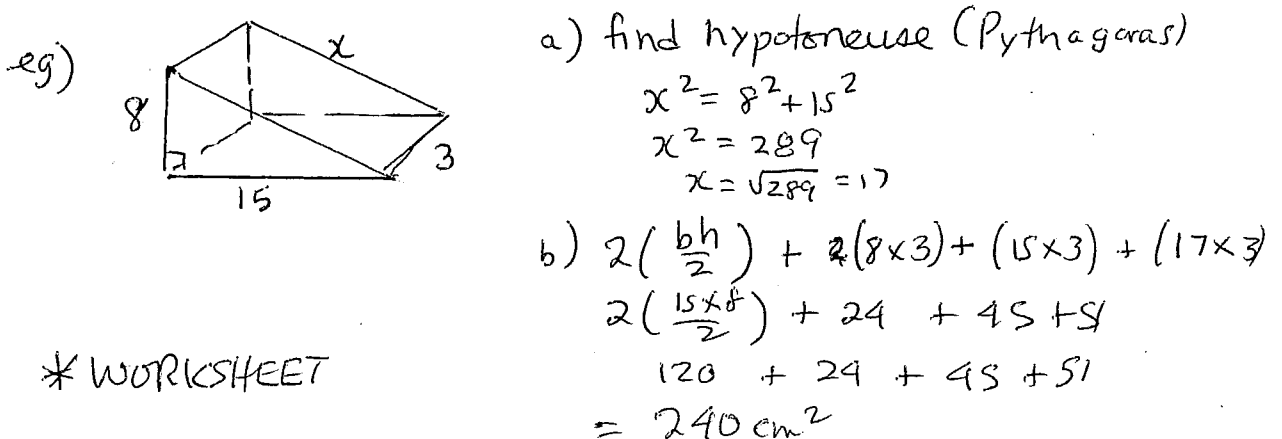 eg)
x
8
3
15
* WORKSHEET
a) find hypotoneuse (Pythagoras)
x² = 8² + 15²
x² = 289
x = √289 = 17
b) 2(bh/2) + (8×3) + (15×3) + (17×3)
2(15×8/2) + 24 + 45 + 51
120 + 24 + 45 + 51
= 240 cm²